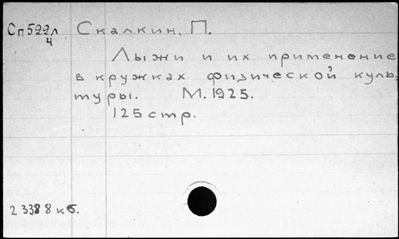 Сп522л Скалкин, П.
4
Лыжи и их применение
в кружках физической куль-
туры. М. 1925.
125 стр.
23388 кб.